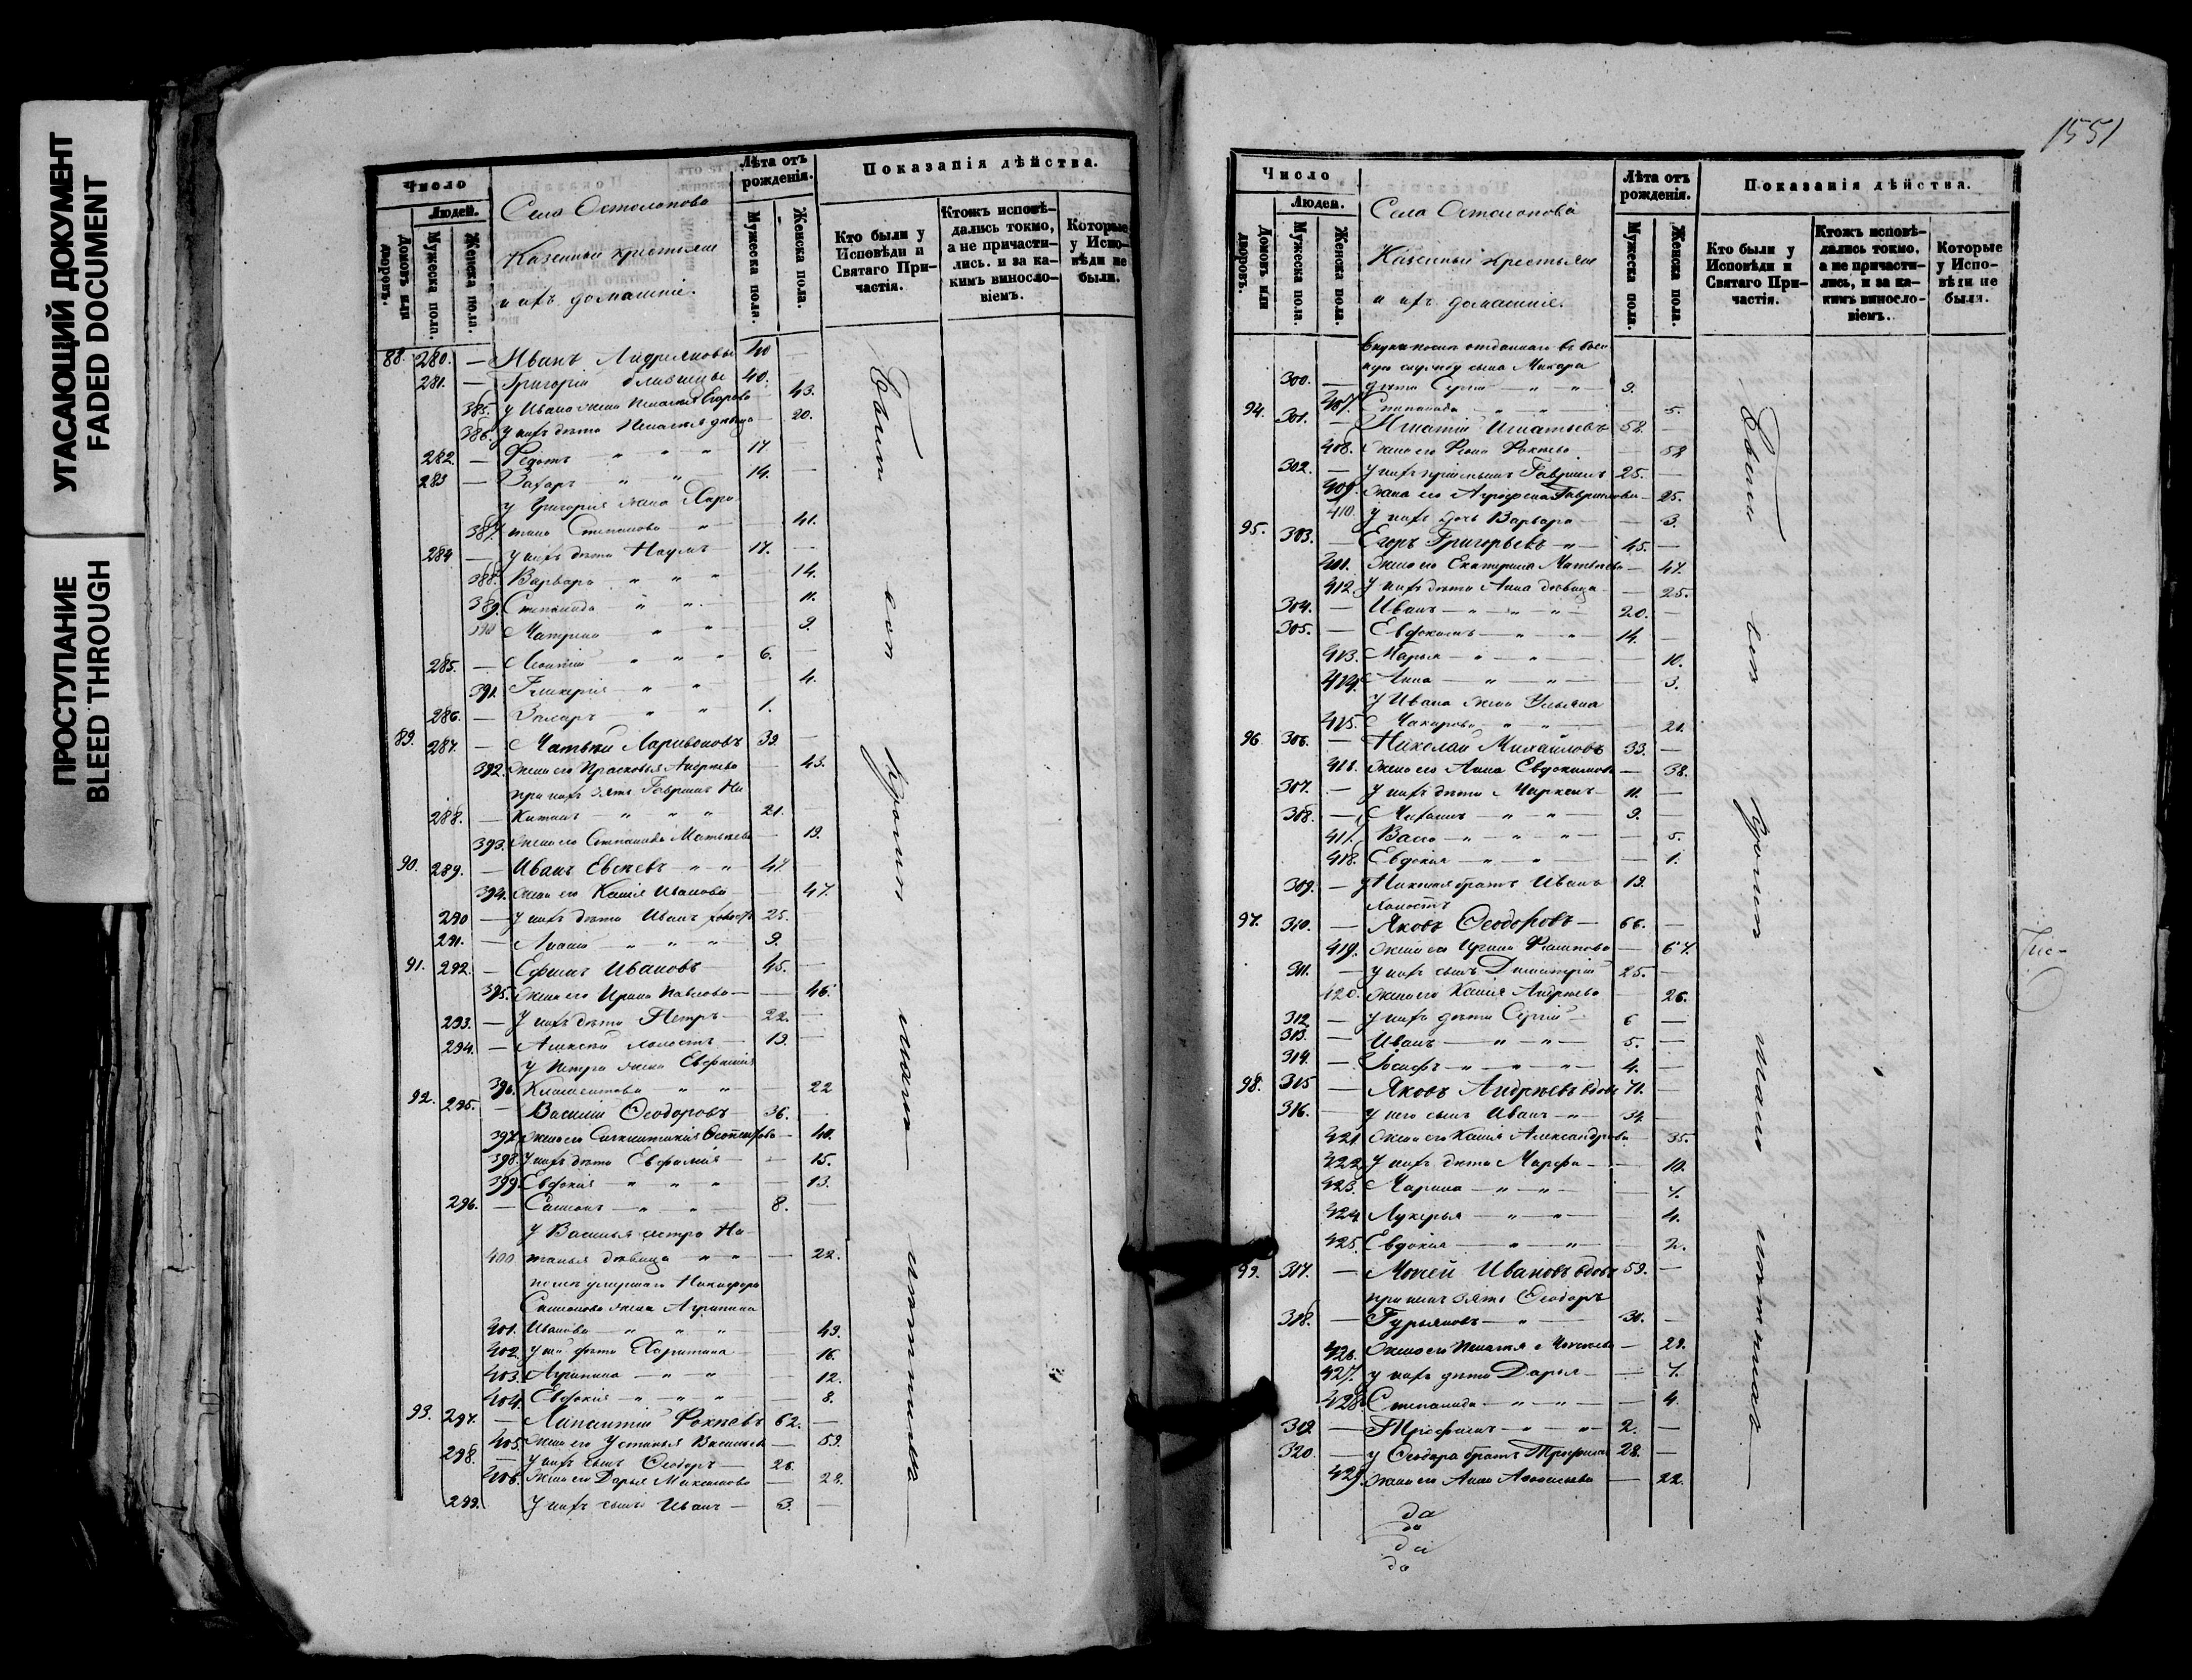 УГАСАЮЩИЙ ДОКУМЕНТ
FADED DOCUMENT
ПРОСТУПАНИЕ
BLEED THROUGH
Число
Людей.
Домовъ или дворовъ.
Мужеска пола.
Женска пола.
Село Остолопово
Казенныи крестьяне
и ихъ домашніе.
Лѣта отъ рожденія.
Мужеска пола.
Женска пола.
Показанія дѣйства.
Кто были у Исповѣди и Святаго Причастія.
Ктожъ исповѣдались токмо, а не причастились. и за какимъ винословіемъ.
Которые у Исповѣди не были.
88. 280. — Иванъ Андрияновы 40 —
281. — Григорій 40. —
385. У Ивана жена Пелагея Егорова — 43.
386. У нихъ дѣти Пелагея дѣвица — 20.
282. — Федотъ " " " 17 —
283 — Захаръ " " 14. —
у Григорія жена Хари
387. тина Степанова — " — 41.
284 — У нихъ дѣти Наумъ — 17. —
388. Варвара " " " 14.
389. Степанида " " 11.
390 Матрена " " — 9.
285. — Леонтій " " " 6. —
391. Гликерія — " " 4.
286. — Захаръ — " " 1.
89. 287. — Матвѣй Ларивоновъ 39. —
392. Жена его Прасковья Андреева — 43.
при нихъ зять Гавріилъ Ни
288. — китинъ — " " " 21. —
393. Жена его Степанида Матвѣева — 19.
90. 289. — Иванъ Евсеевъ " " 47. —
394. Жена его Ксенія Иванова — 47.
290 — У нихъ дѣти Иванъ холостъ 25. —
291. — — " " " 9. —
91. 292. — Ефимъ Ивановъ 45. —
395. Жена его Ирина Павлова — — 46.
293. — У нихъ дѣти Петръ — 22. —
294. — Алексѣй холостъ — 19. —
У Петра жена Евфимія
396. Климентова " " — 22
92. 295. — Василій Ѳеодоровъ 36.
397. Жена его — 40.
398. У нихъ дѣти Евфимія — — 15.
399. Евдокія — " " " — 13.
296. — Симонъ — " — " — 8. —
У Василья сестра На
400 талья дѣвица " " — 22.
послѣ умершаго Никифора
Симонова жена Агрипина
401. Иванова — " " " — 49.
402. У ней дѣти Харитина — — 16.
403. Агрипина — " — " — — 12.
404. Евдокія — " " " — 8.
93. 297. — Фокеевъ 62. —
405. Жена его Устинья Васильева — 59.
298. — У нихъ сынъ Ѳеодоръ — 26. —
406. Жена его Дарья Максимова — 22.
299. У нихъ сынъ Иванъ — 3. —
1551
Число
Людей.
Домовъ или дворовъ.
Мужеска пола.
Женска пола.
Село Остолопово
Казенныи крестьяне
и ихъ домашніе.
Лѣта отъ рожденія.
Мужеска пола.
Женска пола.
Показанія дѣйства.
Кто были у Исповѣди и Святаго Причастія.
Ктожъ исповѣдались токмо, а не причастились, и за какимъ винословіемъ.
Которые у Исповѣди не были.
отданнаго въ воен
ную службу сына Макара
300. — дѣти Сергій — " — " — 9.
407. Степанида " " — 5.
94. 301. — Игнатій Игнатьевъ 58. —
408. Жена его Фокеева — 52
302. — У нихъ пріемышъ Гавріилъ 25. —
409. Жена его Агрофена Гаврилова — 25.
410. У нихъ дочь Варвара — 3.
95. 303. — Егоръ Григорьевъ " 45. —
411. Жена его Екатерина Матвѣева — 47.
412. У нихъ дѣти Анна дѣвица — 25.
304. — Иванъ — " — " " 20. —
305. — Евдокимъ — " " 14. —
413. Марья — " — " — — 10.
414. Анна — " — " — — 3.
У Ивана жена Ульяна
415. Макарова " " — 21.
96 306. — Николай Михайловъ 33. —
416. Жена его Анна Евдокимова — 38.
307. — У нихъ дѣти Маркелъ — 11. —
308. — — " " " 9. —
417. Васса — " — " " — 5.
418. Евдокія — " — " — — 1.
309. — У Николая братъ Иванъ 19.
холостъ
97. 310. — Яковъ Ѳеодоровъ — 66. —
419. Жена его Ирина Филипова — 67.
311. — У нихъ сынъ Димитрій 25. —
420. Жена его Ксенія Андреева 26.
312 — У нихъ дѣти Сергій — 6 —
313. — Иванъ — " — " — 5. —
314. — Іосифъ — " — " — " 4. —
98. 315 — Яковъ Андреевъ вдовъ 71. —
316. — У него сынъ Иванъ — " 34. —
421. Жена его Ксенія Александрова — 35.
422. У нихъ дѣти Марфа — — 10.
423. Марина — " — " — — 7.
424. Лукерья — " — " — 4.
425. Евдокія — " — " — 2.
99. 317. — Мокей Ивановъ вдовъ 59. —
при немъ зять Ѳеодоръ
318. — Гурьяновъ — " — 30. —
426. Жена его Пелагея Мокеева — 29.
427. У нихъ дѣти Дарья — — 7.
428. Степанида — " — " — 4.
319. — Трофимъ — " — " 2. —
320. — У Ѳеодора братъ Трофимъ 28. —
429. Жена его Анна Афонасьева — 22.
да
да
да
да